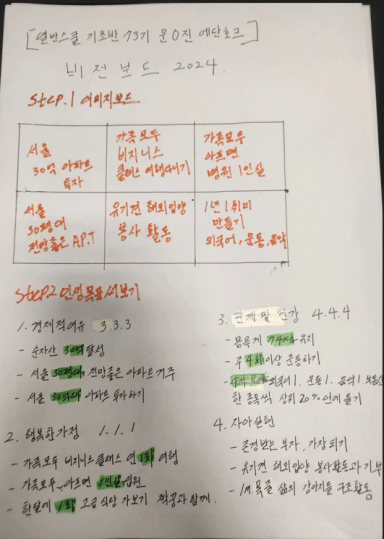 [열반스쿨 기초반 73기 문O진 에단호크]
비전보드 2024.
Step.1 이미지보드
서울
30억 아파트
투자
가족모두
비지니스
클래스 여행다니기
가족모두
아프면
병원 1인실
서울
30평대
전망좋은 AP.T
유기견 해외입양
봉사 활동
1년 1취미
만들기
외국어, 운동, 음악
Step2 인생목표 써보기
1. 경제적여유 3.3.3
- 순자산 30억 달성
- 서울 30평대, 전망좋은 아파트 거주
- 서울 30억대 아파트 투자하기
2. 행복한가정 1.1.1
- 가족모두 비지니스클래스 연1회 여행
- 가족모두, 아프면 1인실 입원
- 한달에 1회 고급 식당 가보기 짝꿍과 함께.
3. 및 건강 4.4.4
- 몸무게 74kg 유지
- 주 4회이상 운동하기
- 외국어1. 운동1. 음악1
한 종목씩 상위 20% 안에 들기
4. 자아실현
- 존경받는 부자, 가장되기
- 유기견 해외입양 봉사활동과 기부
- 1m 목줄 삶의 강아지들 구조활동